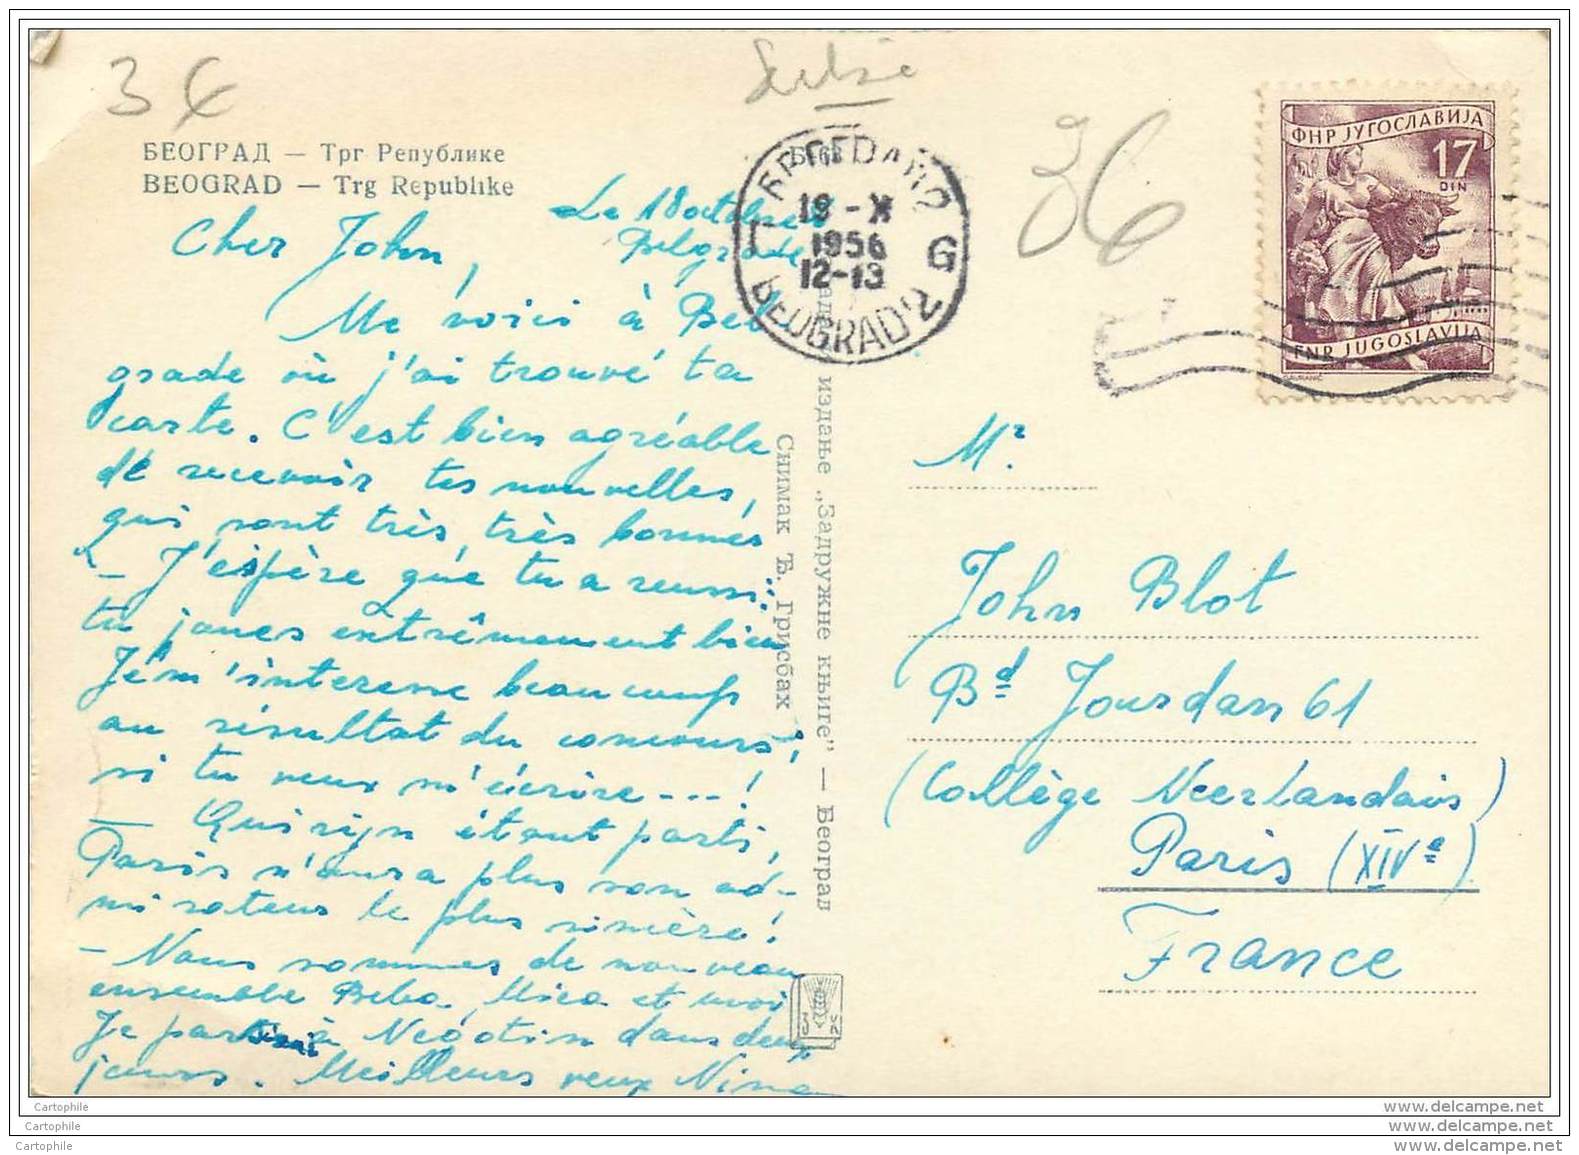 36
Serbie
36
БЕОГРАД — Трг Републике
BEOGRAD — Trg Republike
Le 18 octobre
Belgrade
Cher John,
Me voici à Bel
grade où j'ai trouvé ta
carte. C'est bien agréable
de recevoir tes nouvelles,
qui sont très, très bonnes
— J'espère que tu a reussi:
tu joues extrêmement bien
Je m'interesse beaucoup
au résultat du concours,
si tu veux m'écrire ---!
— Quirijn étant parti,
Paris n'aura plus son ad-
mirateur le plus sincère!
— Nous sommes de nouveau
ensemble Beba, Mica et moi
Je pars à Negotin dans deux
jours. Meilleurs veux Nina
BEOGRAD 2
18 - X
1956
12-13
G
издање „Задружне књиге” — Београд
Снимак Ђ. Грисбах
З К
ФНР ЈУГОСЛАВИЈА
17
DIN
FNR JUGOSLAVIJA
Mr.
John Blot
Bd Jourdan 61
(Collège Neerlandais)
Paris (XIVe)
France
Cartophile
Cartophile
Cartophile
www.delcampe.net
www.delcampe.net
www.delcampe.net